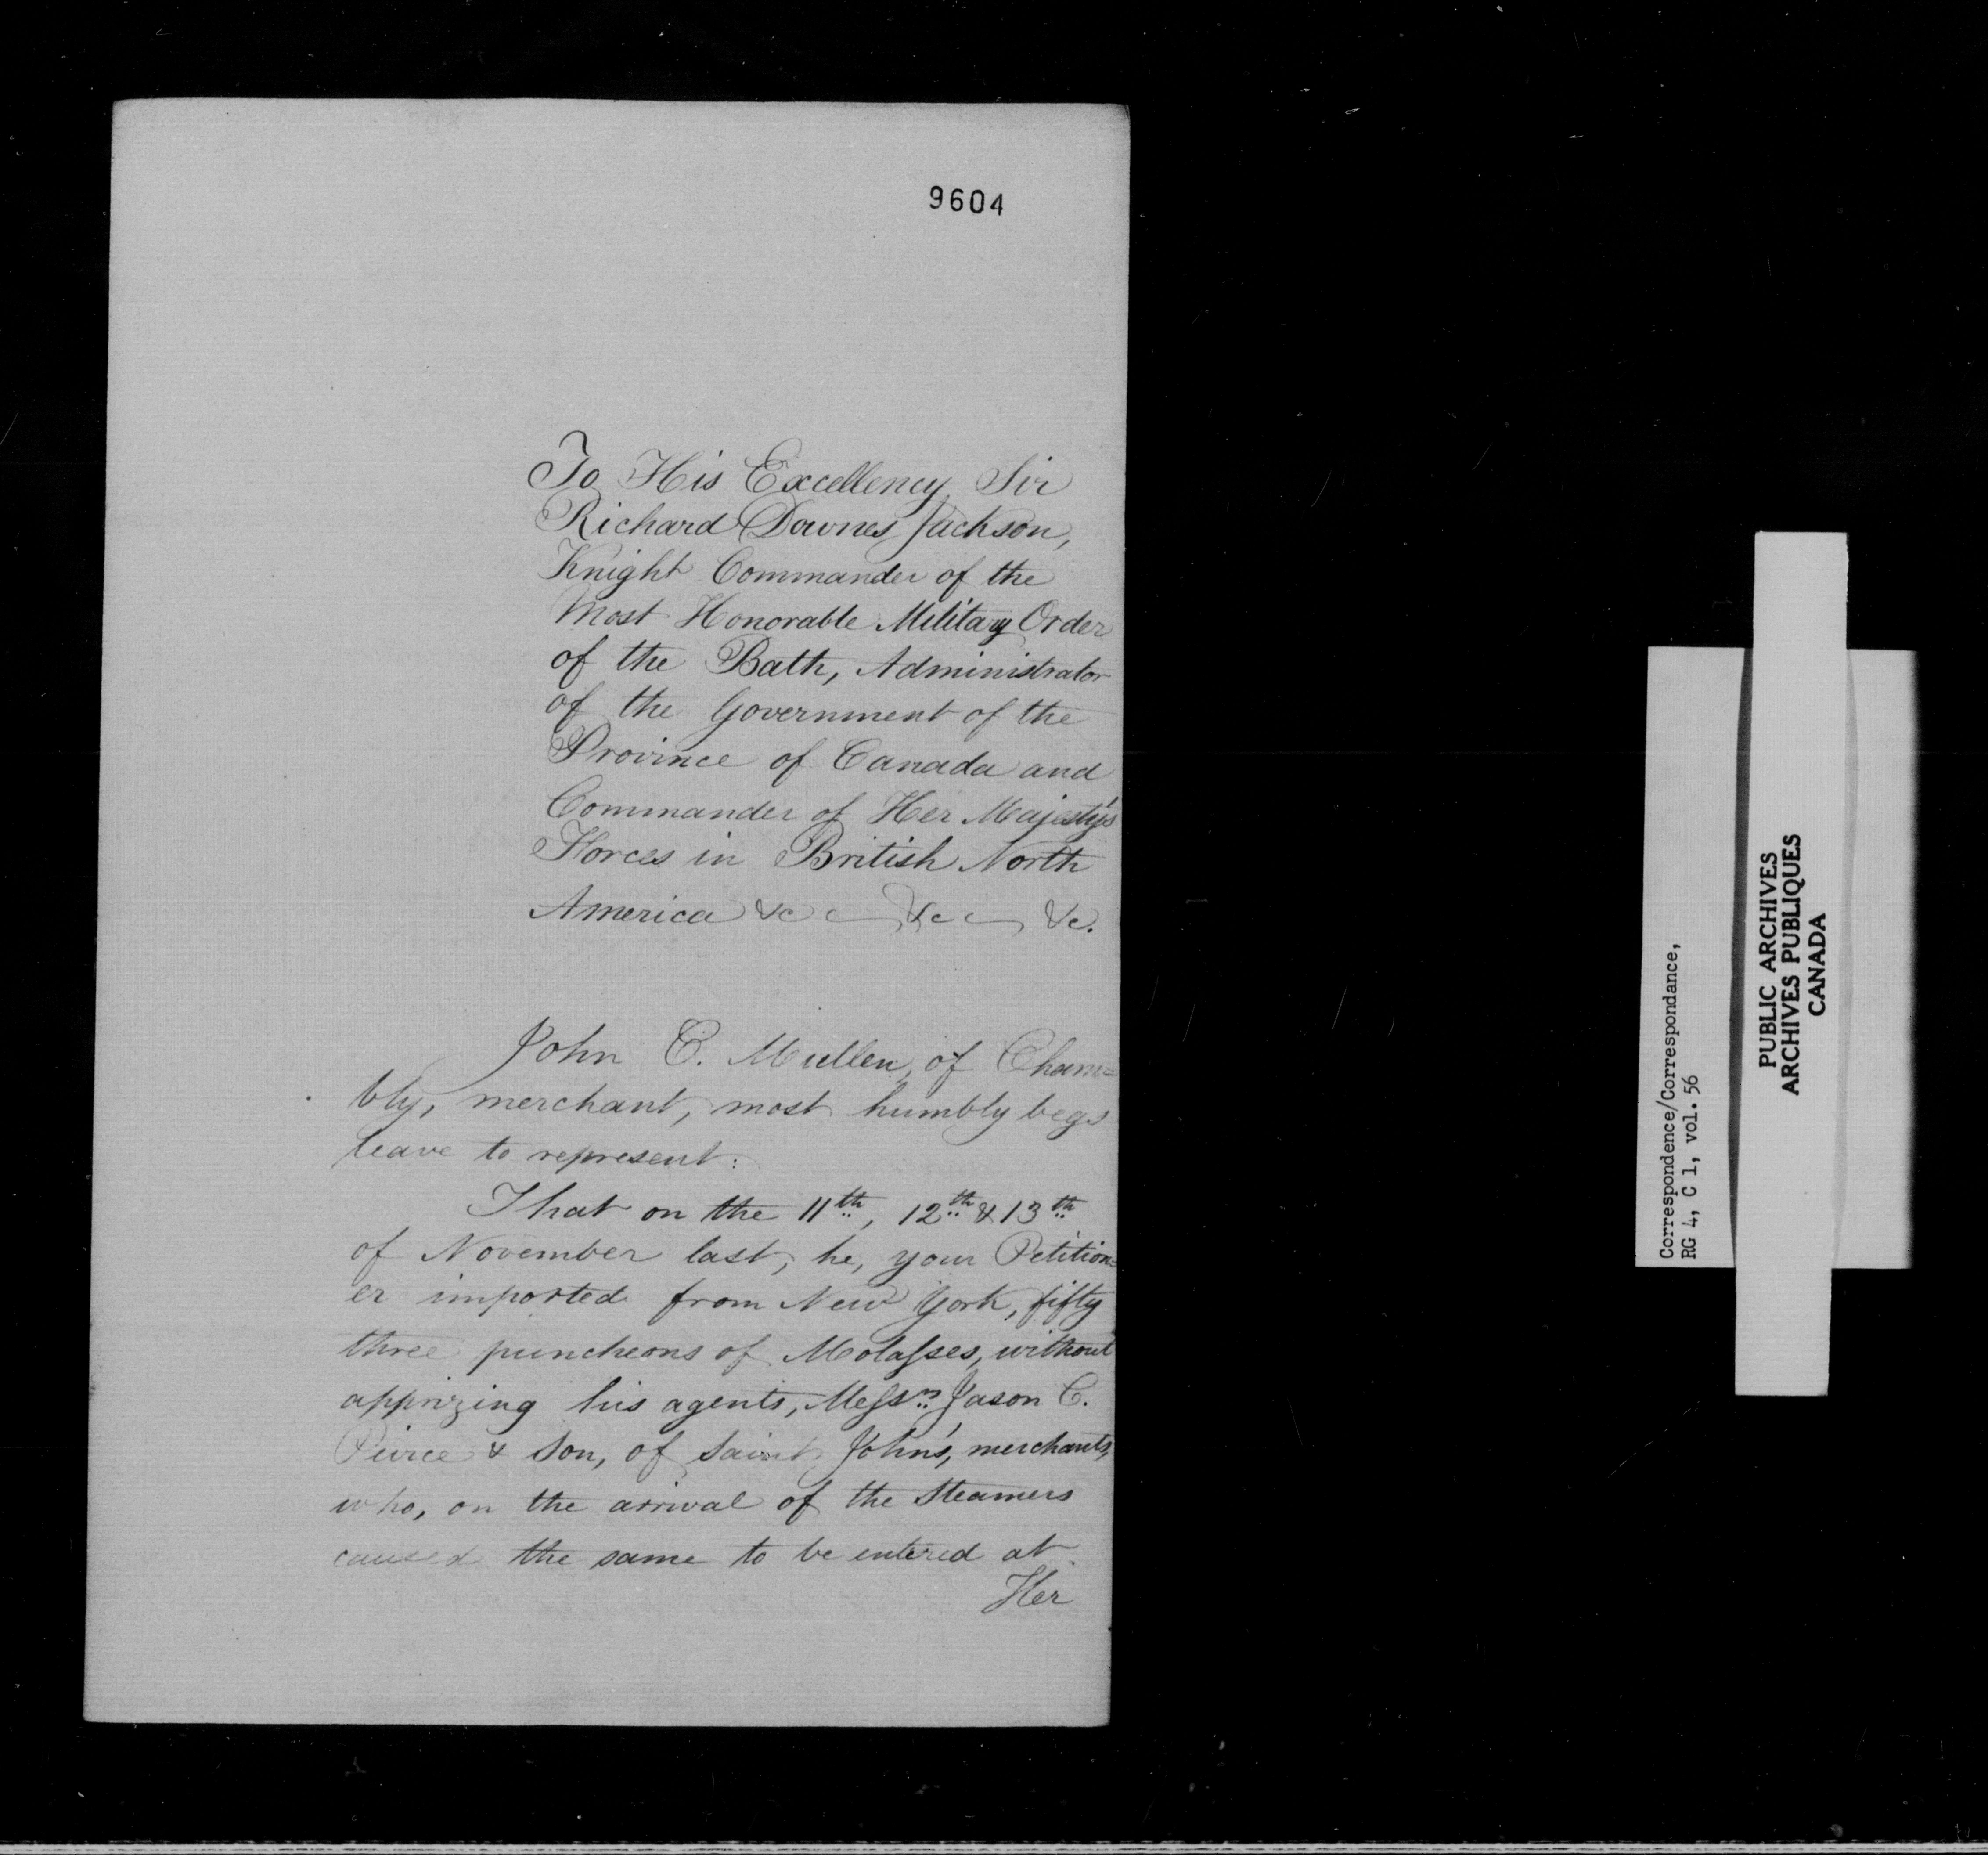 9604
To His Excellency Sir
Richard Downes Jackson,
Knight Commander of the
Most Honorable Military Order
of the Bath, Administrator
of the Government of the
Province of Canada and
Commander of Her Majesty's
Forces in British North
America &c &c &c.
John C. Mullen, of Cham=
bly, merchant, most humbly begs
leave to represent:
That on the 11th, 12th & 13th
of November last, he, your Petition=
er imported from New York, fifty
three puncheons of Molaſses, without
apprizing his agents, Meſsrs Jason C.
Peirce & Son, of Saint John's, merchants,
who, on the arrival of the Steamers
caused the same to be entered at
Her
Correspondence/Correspondance,
RG 4, C 1, vol. 56
PUBLIC ARCHIVES
ARCHIVES PUBLIQUES
CANADA